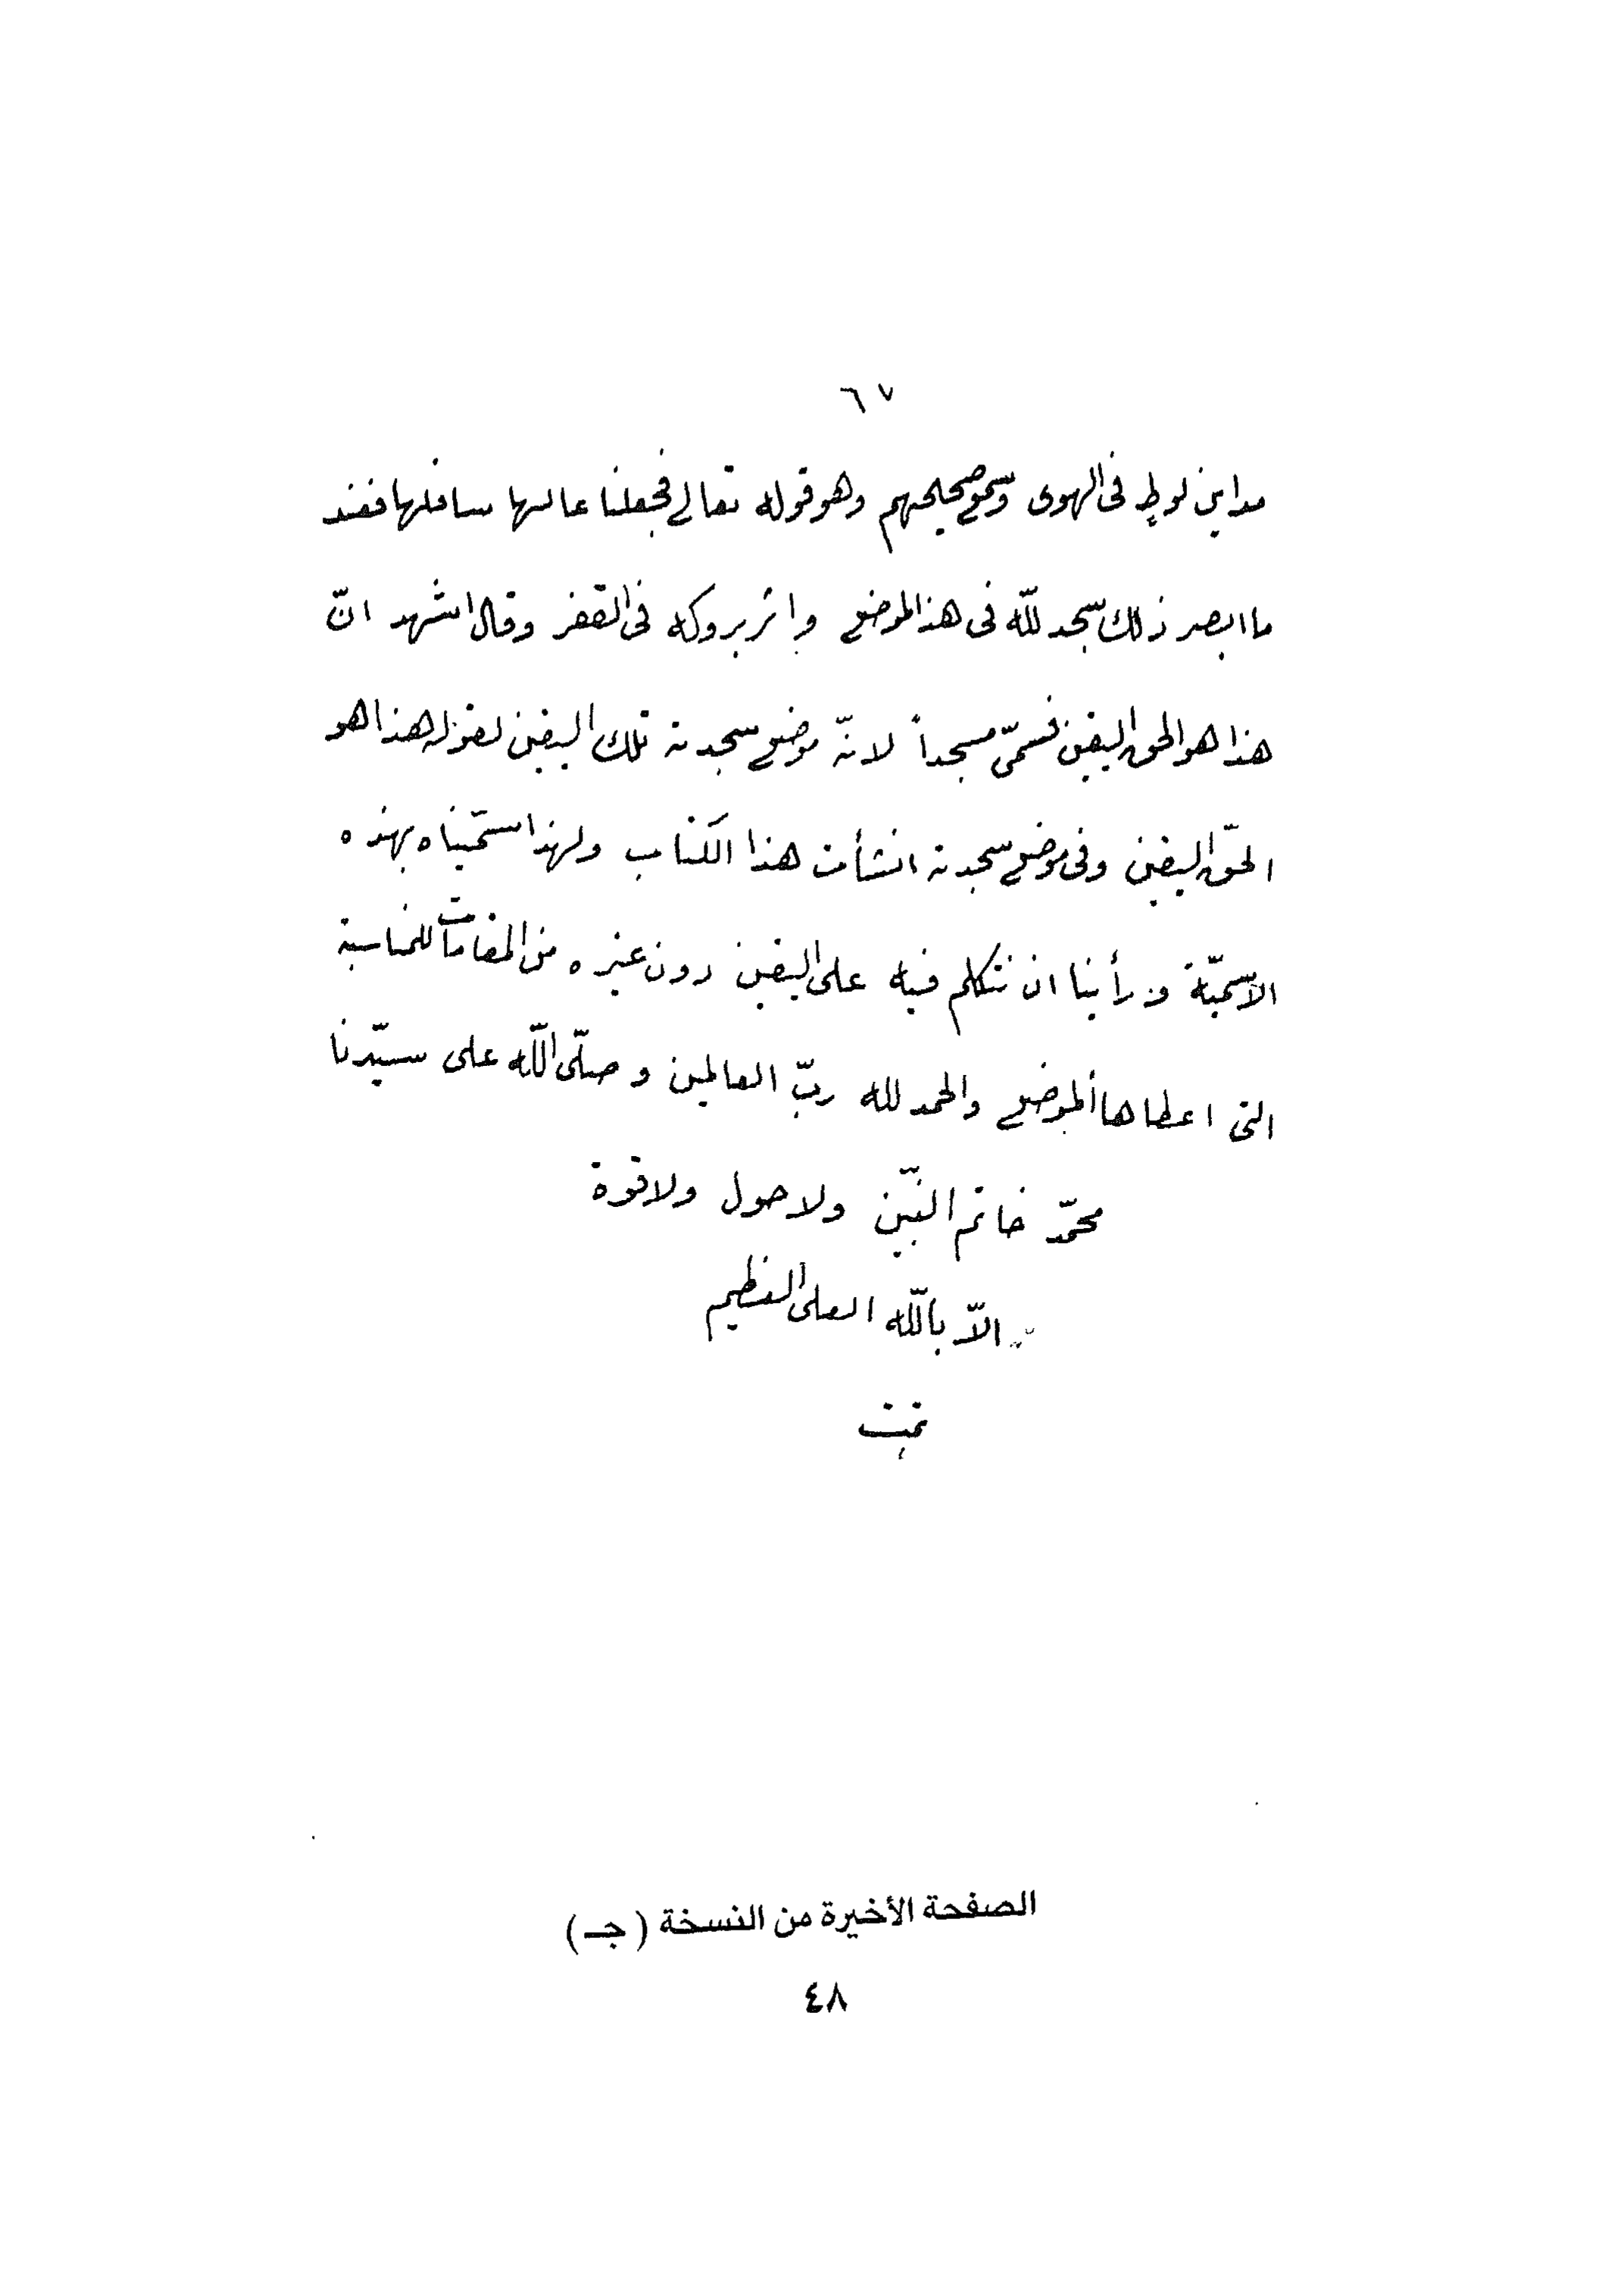 ٦٧
مداين لوطٍ فى الهوى وسمع صحيحهم وهو قوله تعالى فجعلنا عاليها سافلها فعند
ما ابصر ذلك سجد لله فى هذا الموضع واثر بروكه فى القفر وقال اشهد انّ
هذا هو الحق اليقين فسمّى مسجداً لانّه موضع سجدته تلك اليقين لقوله هذا هو
الحقّ اليقين وفى موضع سجدته انشأت هذا الكتاب ولهذا سمّيناه بهذه
الاسميّة ورأينا ان نتكلم فيه على اليقين دون غيره من المقامات للمناسبة
التى اعطاها الموضع والحمد لله ربّ العالمين وصلّى اللّه على سيّدنا
محمّد خاتم النبيّن ولا حول ولا قوة
الاّ باللّه العلى العظيم
تمت
الصفحة الأخيرة من النسخة ( جـ )
٤٨